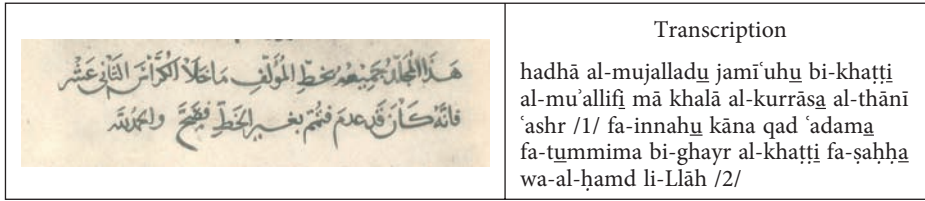 هَذَا المُجَلَّدُ جَمِيْعُهُ بخَطِّ المُؤَلِّفِ مَا خَلَا الكُرَّاسَ الثَّانِي عَشَر
فَانَّهُ كَانَ قَد عدمَ فَتُمّمَ بغَيرِ الخَطِّ فصَحَّ والحمد لله
Transcription
hadhā al-mujalladu jamīʿuhu bi-khaṭṭi
al-muʾallifi mā khalā al-kurrāsa al-thānī
ʿashr /1/ fa-innahu kāna qad ʿadama
fa-tummima bi-ghayr al-khaṭṭi fa-ṣaḥḥa
wa-al-ḥamd li-Llāh /2/